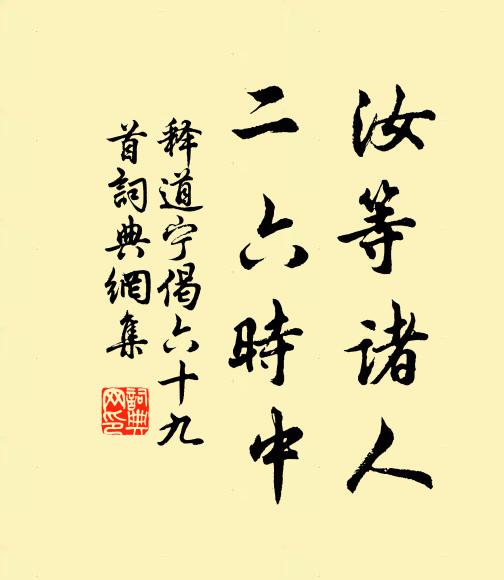 汝等诸人
二六時中
释道宁偈六十九
首詞典網集
詞典
网印